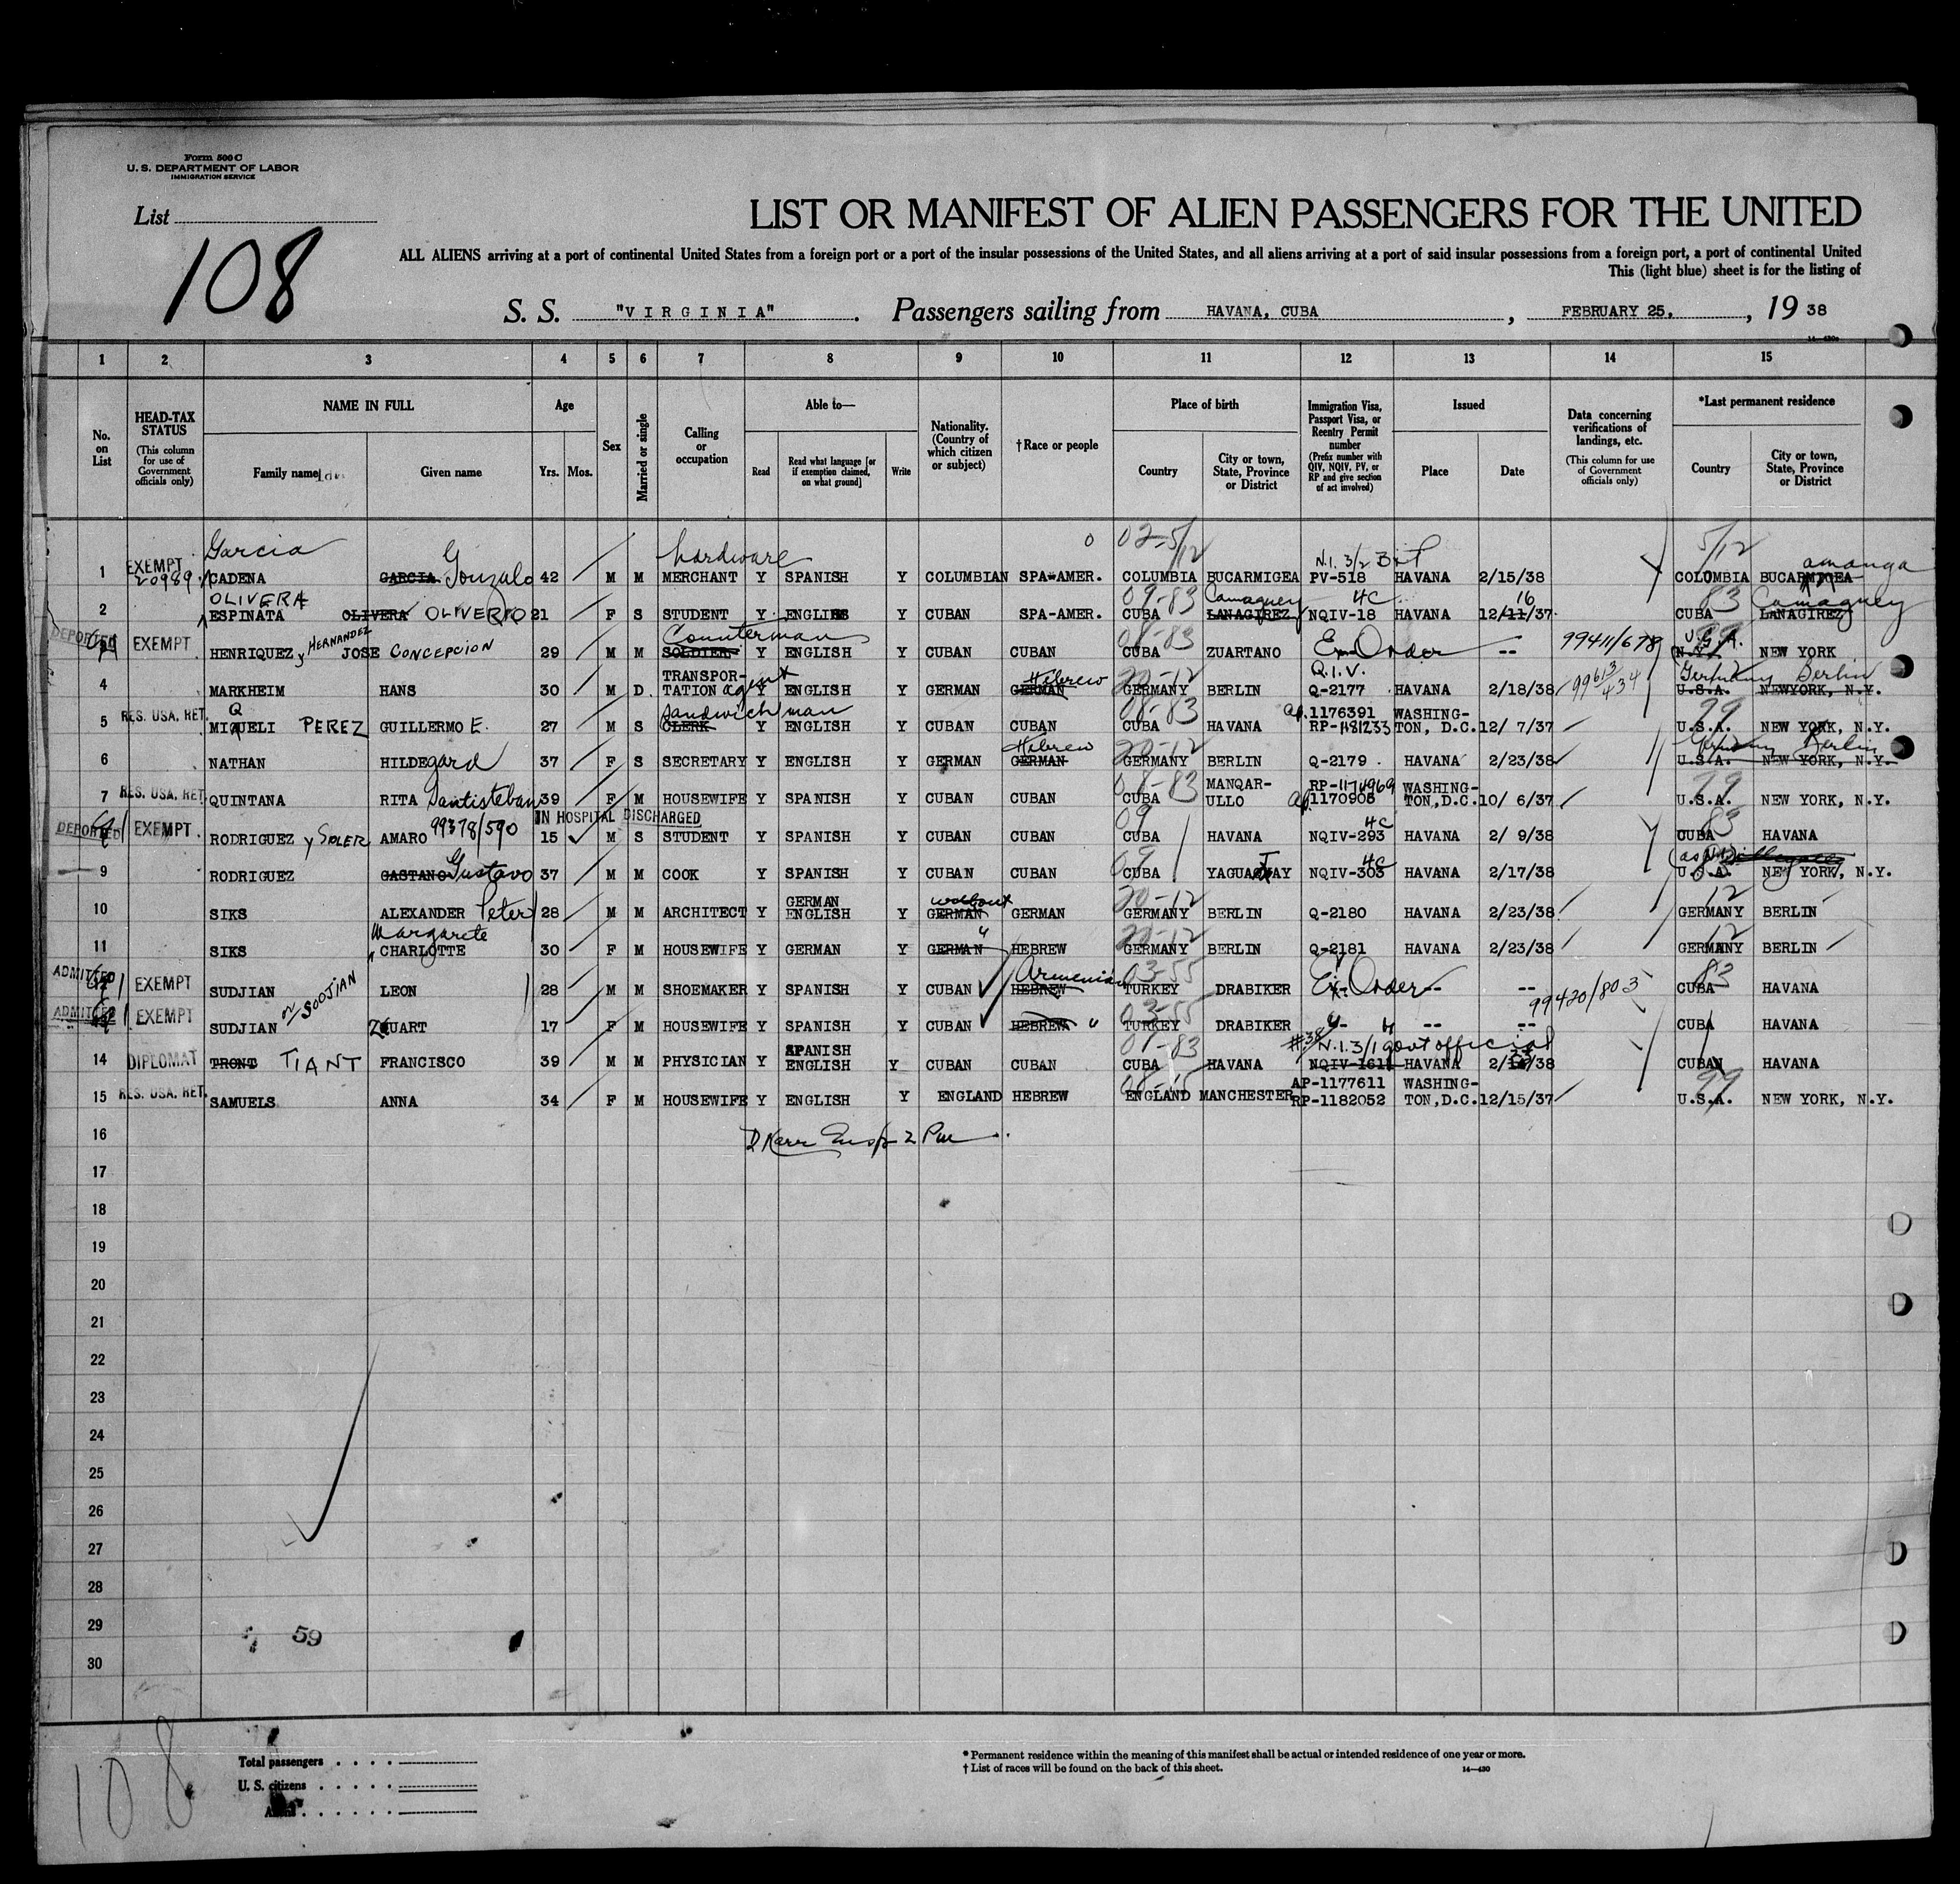 Form 500 C
U. S. DEPARTMENT OF LABOR
IMMIGRATION SERVICE
List
108
LIST OR MANIFEST OF ALIEN PASSENGERS FOR THE UNITED
ALL ALIENS arriving at a port of continental United States from a foreign port or a port of the insular possessions of the United States, and all aliens arriving at a port of said insular possessions from a foreign port, a port of continental United
This (light blue) sheet is for the listing of
S. S. "VIRGINIA" . Passengers sailing from HAVANA, CUBA , FEBRUARY 25. , 19 38
1 2 3 4 5 6 7 8 9 10 11 12 13 14 15
No. on List
HEAD-TAX STATUS (This column for use of Government officials only)
NAME IN FULL
Family name Given name
Age
Yrs. Mos.
Sex
Married or single
Calling or occupation
Able to—
Read Read what language [or if exemption claimed, on what ground] Write
Nationality. (Country of which citizen or subject)
†Race or people
Place of birth
Country City or town, State, Province or District
Immigration Visa, Passport Visa, or Reentry Permit number (Prefix number with QIV, NQIV, PV, or RP and give section of act involved)
Issued
Place Date
Data concerning verifications of landings, etc. (This column for use of Government officials only)
*Last permanent residence
Country City or town, State, Province or District
Garcia G hardware 0 02-5/12 N.I. 3/2 5/12 amanga
1 EXEMPT 20989 CADENA GARCIA Gonzalo 42 M M MERCHANT Y SPANISH Y COLUMBIAN SPA-AMER. COLUMBIA BUCARMIGEA PV-518 HAVANA 2/15/38 COLOMBIA BUCARMIGEA
OLIVERA 09-83 Camaguey 4C 16 83 Camaguey
2 ESPINATA OLIVERA OLIVERIO 21 F S STUDENT Y ENGLISS Y CUBAN SPA-AMER. CUBA LANAGIREZ NQIV-18 HAVANA 12/11/37 CUBA LANAGIREZ
Counterman 08-83 99411/678 U.S.A.
DEPORTED EXEMPT HENRIQUEZ y HERNANDEZ JOSE CONCEPCION 29 M M SOLDIER Y ENGLISH Y CUBAN CUBAN CUBA ZUARTANO Ex Order -- N.Y. NEW YORK
Hebrew 20-12 Q.I.V. 99613/434 Germany Berlin
4 MARKHEIM HANS 30 M D TRANSPORTATION agent Y ENGLISH Y GERMAN GERMAN GERMANY BERLIN Q-2177 HAVANA 2/18/38 U.S.A. NEWYORK, N.Y.
Q Sandwich man 08-83 99
5 RES. USA. RET. MIQUELI PEREZ GUILLERMO E. 27 M S CLERK Y ENGLISH Y CUBAN CUBAN CUBA HAVANA ap. 1176391 RP-1181233 WASHINGTON, D.C. 12/ 7/37 U.S.A. NEW YORK, N.Y.
Hebrew 20-12 Germany Berlin
6 NATHAN HILDEgard 37 F S SECRETARY Y ENGLISH Y GERMAN GERMAN GERMANY BERLIN Q-2179 HAVANA 2/23/38 U.S.A. NEW YORK, N.Y.
08-83 99
7 RES. USA. RET. QUINTANA RITA Santisteban 39 F M HOUSEWIFE Y SPANISH Y CUBAN CUBAN CUBA MANQARULLO RP-1174969 ap. 1170905 WASHINGTON, D.C. 10/ 6/37 U.S.A. NEW YORK, N.Y.
IN HOSPITAL DISCHARGED 09 4C 83
DEPORTED EXEMPT RODRIGUEZ y SOLER AMARO 99378/590 15 M S STUDENT Y SPANISH Y CUBAN CUBAN CUBA HAVANA NQIV-293 HAVANA 2/ 9/38 CUBA HAVANA
09 4C
9 RODRIGUEZ GASTANO Gustavo 37 M M COOK Y SPANISH Y CUBAN CUBAN CUBA YAGUAJAY NQIV-303 HAVANA 2/17/38 U.S.A. NEW YORK, N.Y.
without 20-12 12
10 SIKS ALEXANDER Peter 28 M M ARCHITECT Y GERMAN ENGLISH Y GERMAN GERMAN GERMANY BERLIN Q-2180 HAVANA 2/23/38 GERMANY BERLIN
Margarete " 20-12 12
11 SIKS CHARLOTTE 30 F M HOUSEWIFE Y GERMAN Y GERMAN HEBREW GERMANY BERLIN Q-2181 HAVANA 2/23/38 GERMANY BERLIN
Armenian 03-55 83
ADMITTED EXEMPT SUDJIAN or SOOJIAN LEON 28 M M SHOEMAKER Y SPANISH Y CUBAN HEBREW TURKEY DRABIKER Ex. Order -- -- 99420/803 CUBA HAVANA
03-55
ADMITTED EXEMPT SUDJIAN ZUART 17 F M HOUSEWIFE Y SPANISH Y CUBAN HEBREW " TURKEY DRABIKER " -- -- CUBA HAVANA
01-83 #38 N.I. 3/1 govt official
14 DIPLOMAT TRONT TIANT FRANCISCO 39 M M PHYSICIAN Y SPANISH ENGLISH Y CUBAN CUBAN CUBA HAVANA NQIV-1611 HAVANA CUBAN HAVANA
08-15 99
15 RES. USA. RET. SAMUELS ANNA 34 F M HOUSEWIFE Y ENGLISH Y ENGLAND HEBREW ENGLAND MANCHESTER AP-1177611 RP-1182052 WASHINGTON, D.C. 12/15/37 U.S.A. NEW YORK, N.Y.
16
17
18
19
20
21
22
23
24
25
26
27
28
29
59
30
108
Total passengers
U. S. citizens
* Permanent residence within the meaning of this manifest shall be actual or intended residence of one year or more.
† List of races will be found on the back of this sheet.
14—430